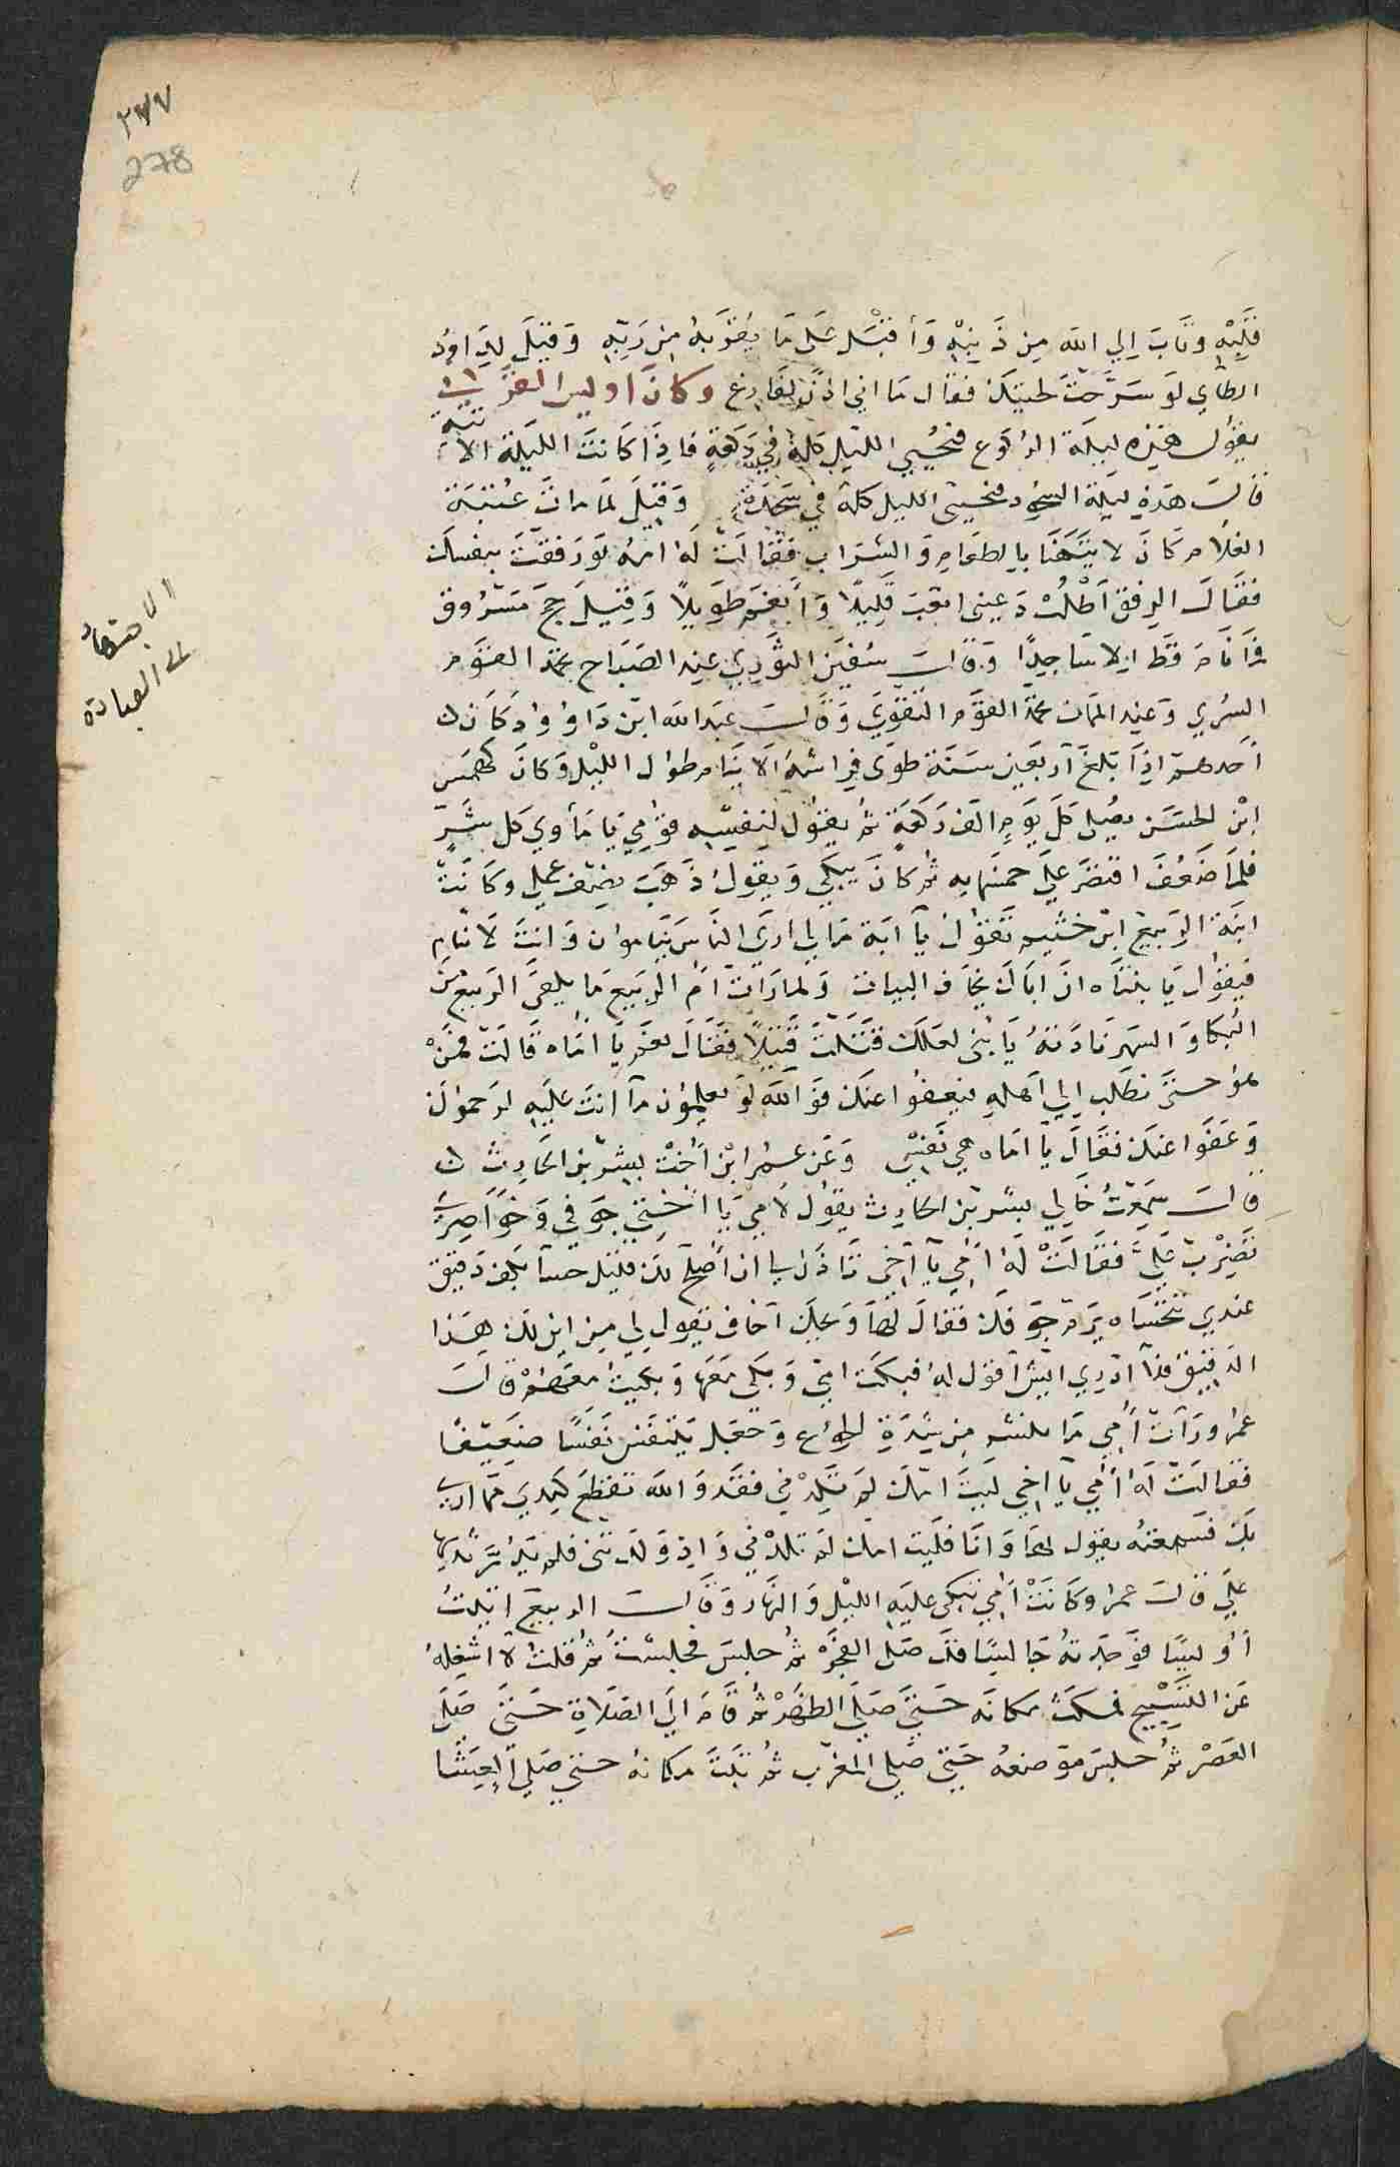 ٢٧٧
278
قلبه وتاب إلي الله من ذنبه وأقبل على ما يقربه من ربه وقيل لداود
الطاي لو سرحت لحيتك فقال ما اني اذن لفارغ وكان اويس القرني
يقول هذه ليلة الركوع فيحيي الليل كله في ركعة فاذا كانت الليلة الاتية
قال هذه ليلة السجود فيحيى الليل كله في سجدة وقيل لما مات عتبة
الغلام كان لا يتهنا بالطعام والشراب فقالت له امه لو رفقت بنفسك
فقال الرفق أطلب دعيني اتعب قليلا وأنعم طويلا وقيل حج مسروق
فما نام قط الا ساجدا وقال سفين الثوري عند الصباح يحمد القوم
السري وعند الممات يحمد القوم التقوي وقال عبد الله ابن داوود كان
أحدهم اذا بلغ أربعين سنة طوى فراشه الا ينام طول الليل وكان كهمس
ابن الحسن يصلي كل يوم الف ركعة ثم يقول لنفسه قومي يا مأوي كل شر
فلما ضعف اقتصر علي خمسمايه ثم كان يبكي ويقول ذهب نصف عملي وكانت
ابنة الربيع ابن خثيم تقول يا ابة مالي اري الناس ينامون وانت لا تنام
فيقول يا بنتاه ان اباك يخاف البيات ولما رات أم الربيع ما يلقى الربيع من
البكا والسهر نادته يا بني لعلك قتلت قتيلا فقال نعم يا اماه قالت فمن
هو حتى نطلب إلي أهله فيعفوا عنك فوالله لو يعلمون ما أنت عليه لرحموك
وعفوا عنك فقال يا اماه هي نفسي وعن عمر ابن أخت بشر بن الحارث
قال سمعت خالي بشر بن الحارث يقول لامي يا اختي جوفي وخواصري
تضرب علي فقالت له أمي يا أخي تاذن لي ان أصلح لك قليل حسا بكف دقيق
عندي تتحساه يرم جوفك فقال لها ويحك أخاف يقول لي من اين لك هذا
الدقيق فلا ادري ايش أقول له فبكت امي وبكي معها وبكيت معهم قال
عمر ورأت أمي ما ببشر من شدة الجوع وجعل يتنفس نفسا ضعيفا
فقالت له أمي يا اخي ليت امك لم تلدني فقد والله تقطع كبدي مما اري
بك فسمعته يقول لها وانا فليت امك لم تلدني واذ ولدتني فلم يدر ثديها
علي قال عمر وكانت أمي تبكي عليه الليل والنهار وقال الربيع اتيت
أويسا فوجدته جالسا قد صلى الفجر ثم جلس فجلست ثم قلت لا اشغله
عن التسبيح فمكث مكانه حتى صلي الظهر ثم قام الى الصلاة حتى صلى
العصر ثم جلس موضعه حتى صلي المغرب ثم ثبت مكانه حتى صلي العشا
الاجتهاد
في العبادة